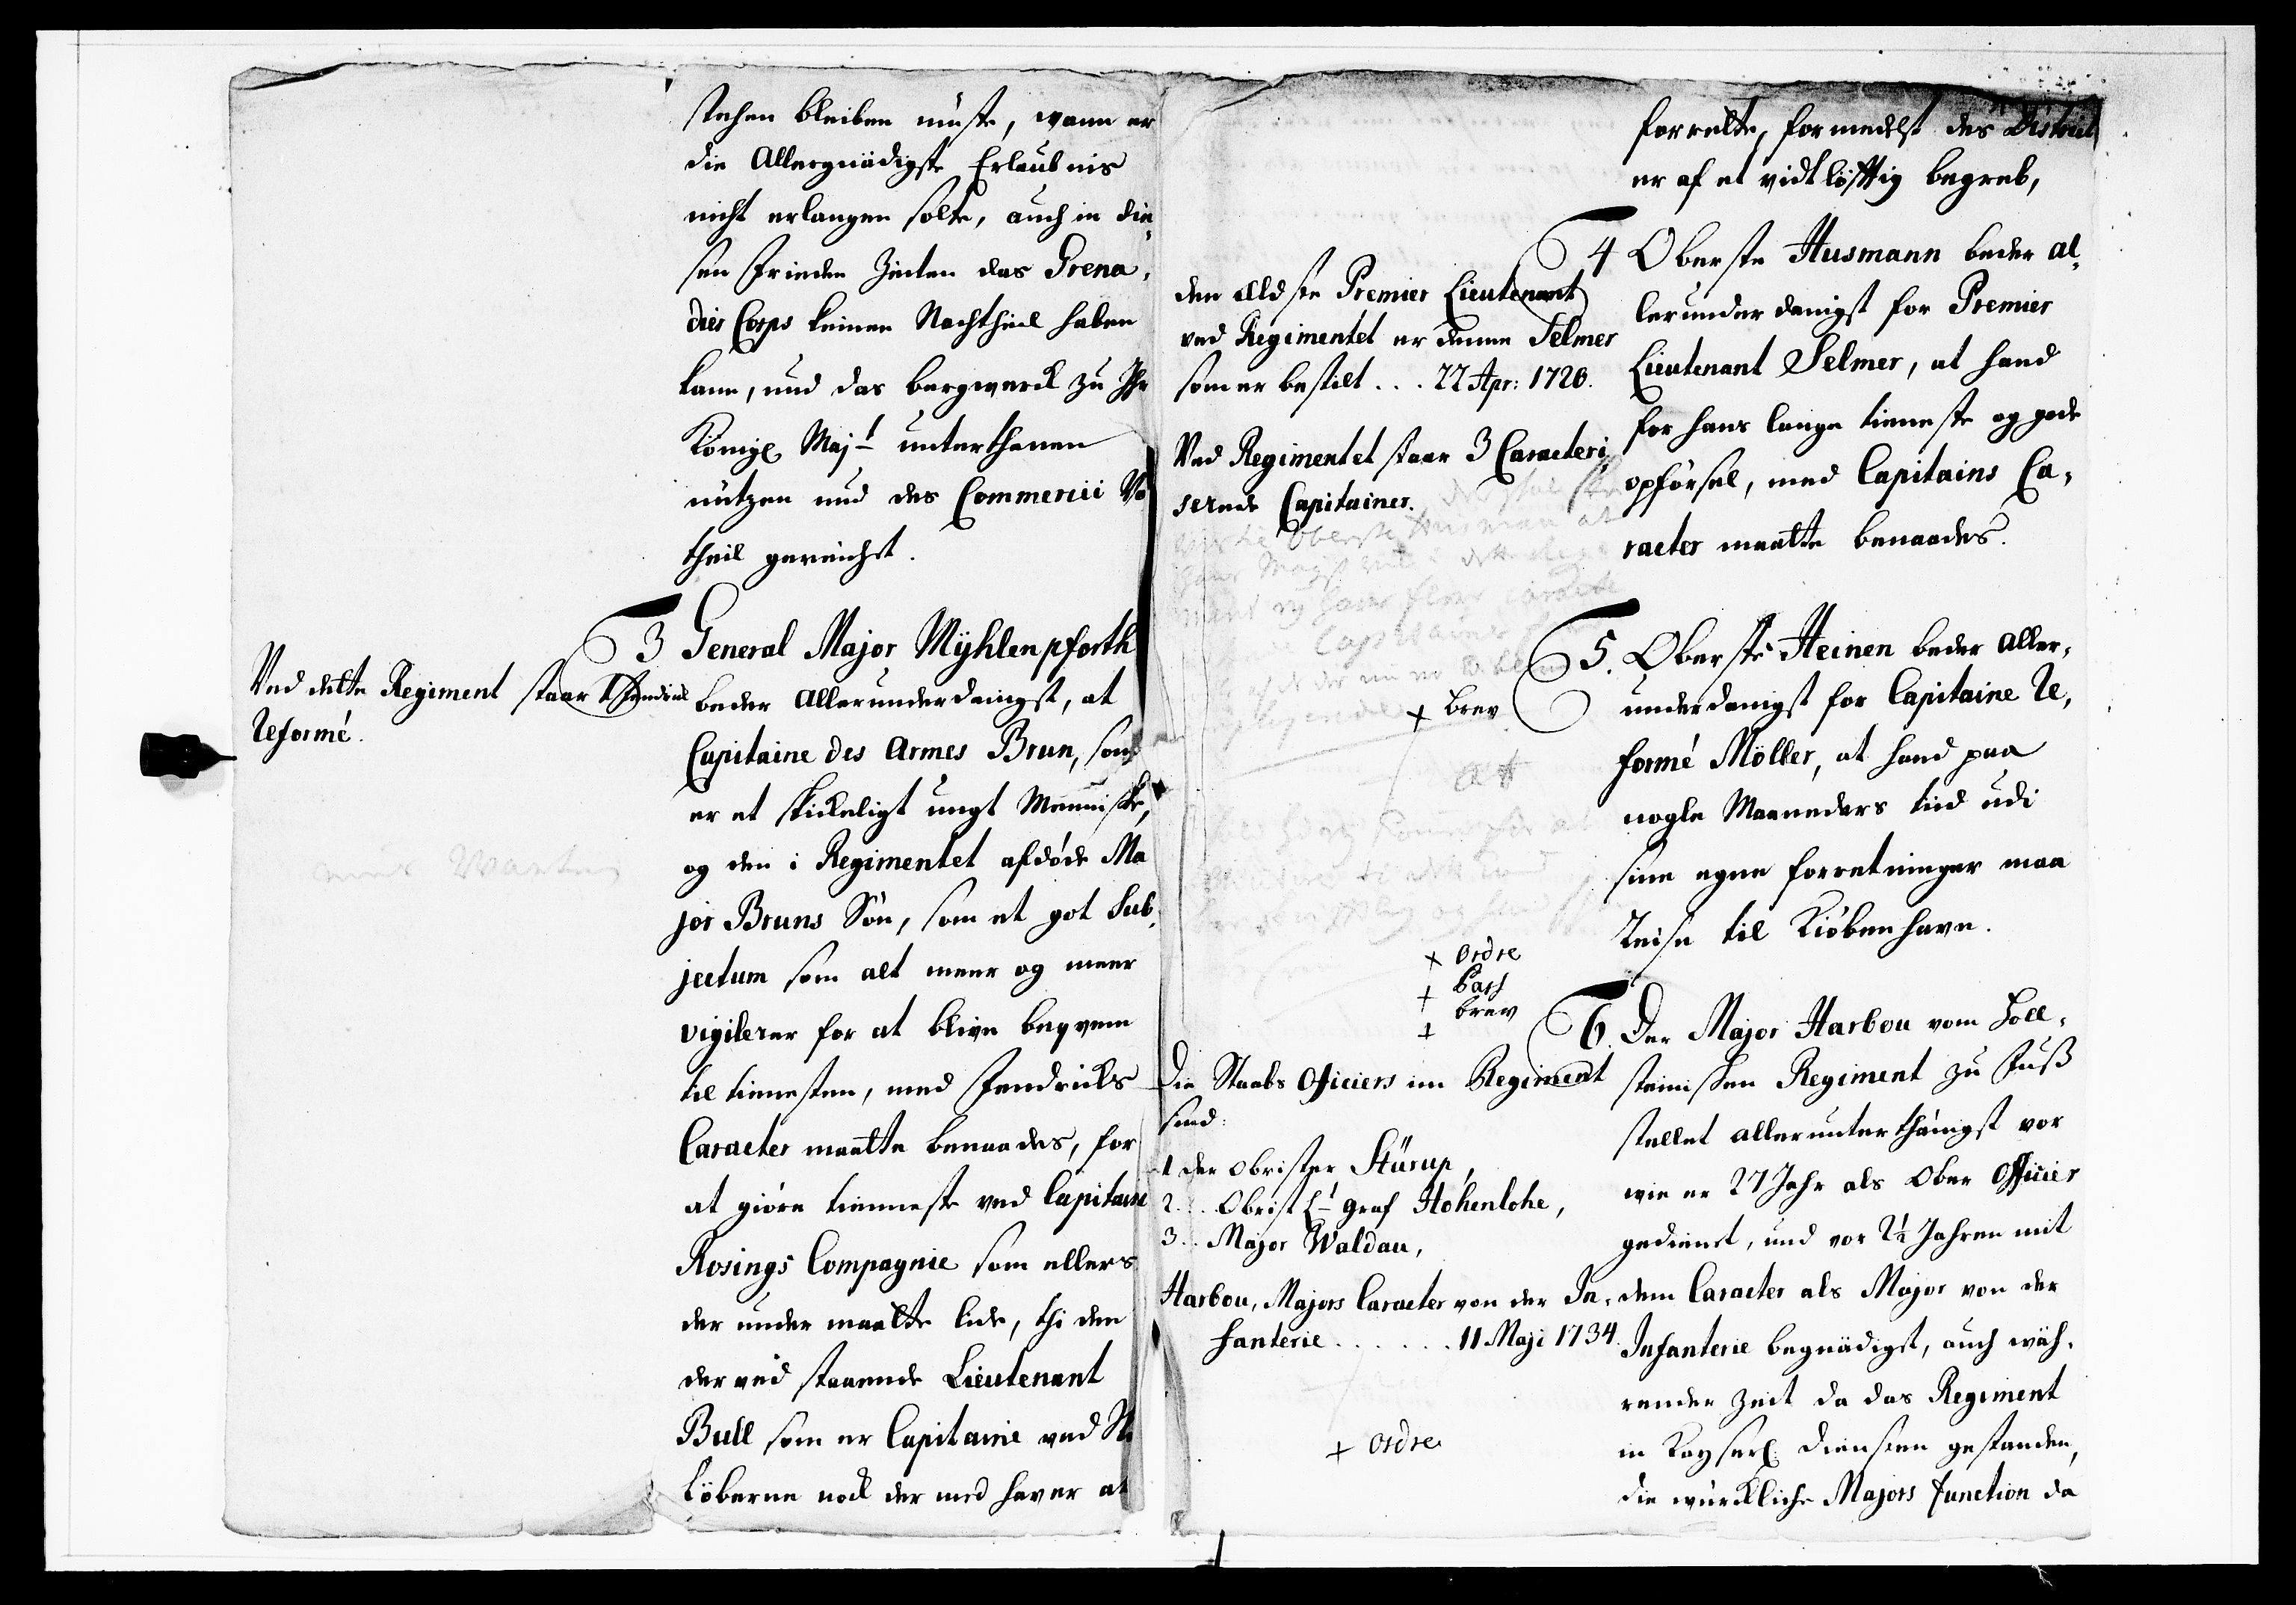 stehen bleiben müste, wann er
die Allergnädigste Erlaubnis
nicht erlangen solte, auch in die-
sen Frieden Zeiten das Grena-
dier Corps keinen Nachtheil haben
kann, und das bergwerck zu Ihr
Königl Majt unterthanen
nutzen und des Commercii Vor
theil gereichet.
3 General Major Mÿhlenpforth
beder Allerunderdanigst, at
Capitaine des Armes Brun, som
er et skickeligt ungt Menniske,
og den i Regimentet afdöde Ma
jor Bruns Sön, som et got Sub-
jectum som alt meer og meer
vigilerer for at blive beqvem
til tienesten, med Fendricks
Caracter maatte benaades, for
at giöre tienneste ved Capitain
Rosings Compagnie som ellers
der under maatte lide, thi den
der ved staaende Lieutenant
Bull som er Capitaine ved Ski
löberne nock der med haver at
Ved dette Regiment staar 1 Fendrick
Reformé.
forrette, formedelst des District
er af et vidtlöfftig begreb,
4 Oberste Husmann beder al-
lerunderdanigst for Premier
Lieutenant Selmer, at hand
for hans lange tieneste og gode
opförsel, med Capitains Ca-
racter maatte benaades.
den Eldste Premier Lieutenant
ved Regimentet er denne Selmer
som er bestilt . . . 22 Apr: 1720.
Ved Regimentet staar 3 Caracteri-
serede Capitainer.
Oberste Husman at
Capitainer
5. Oberste Heinen beder Aller-
underdanigst for Capitaine Re-
formé Möller, at hand paa
nogle Maaneders tiid udi
sine egne forretninger maa
Reise til Kiöbenhavn.
+ brev
att
+ ordre
+ Pass
+ brev
6. Der Major Harbou vom Holl-
steinischen Regiment zu Fuß
stellet allerunterthänigst vor
wie er 27 Jahr als Ober Officier
gedienet, und vor 2½ Jahren mit
dem Caracter als Major von der
Infanterie begnädiget, auch wäh-
render Zeit da das Regiment
in Kayserl. Diensten gestanden,
die würckliche Majors Function da
Die Staabs Officiers im Regiment
sind:
1 der Obrister Stürup,
2. . . Obrist Lt Graf Hohenlohe,
3. . . Major Waldau,
Harbou, Majors Caracter von der In-
fanterie . . . . . . 11 Maji 1734.
+ ordre